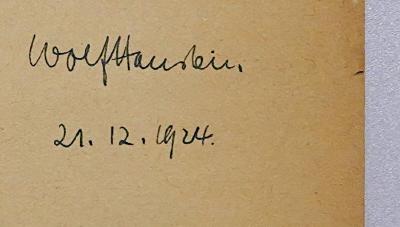 Wolf Hanstein.
21. 12. 1924.